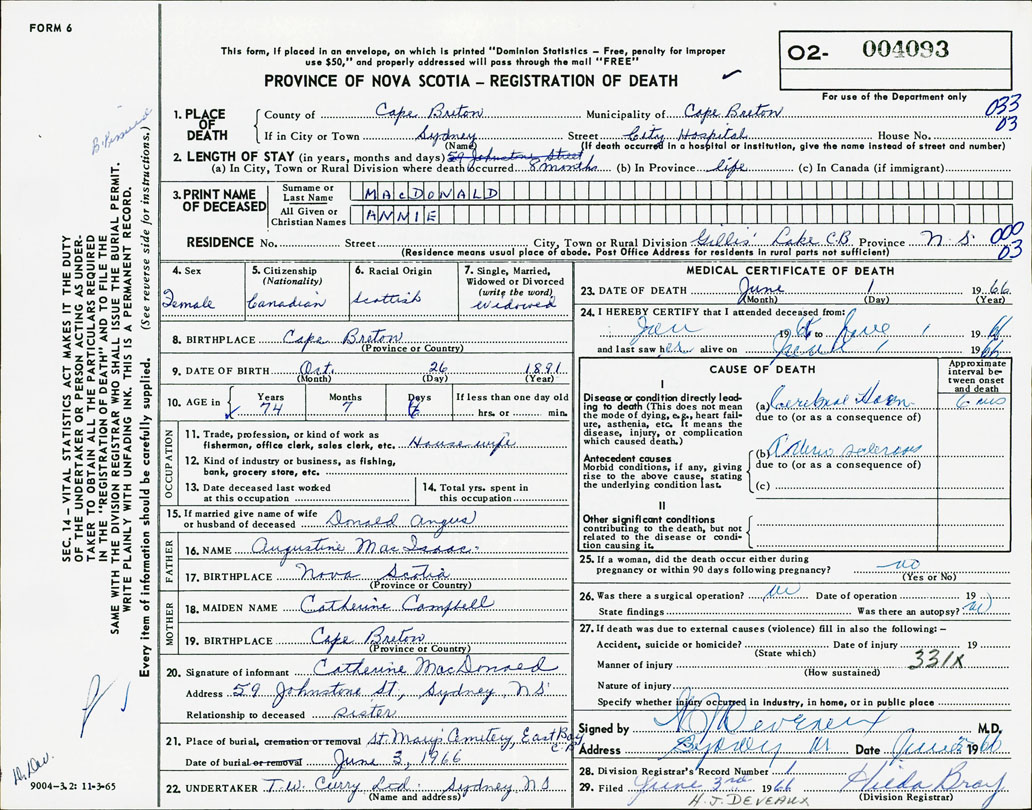 FORM 6
This form, if placed in an envelope, on which is printed "Dominion Statistics – Free, penalty for improper
use $50," and properly addressed will pass through the mail "FREE"
PROVINCE OF NOVA SCOTIA – REGISTRATION OF DEATH
O2- 004093
For use of the Department only
033
03
1. PLACE OF DEATH
County of Cape Breton Municipality of Cape Breton
If in City or Town Sydney Street City Hospital House No.
(Name) (If death occurred in a hospital or institution, give the name instead of street and number)
2. LENGTH OF STAY (in years, months and days) 59 Johnstone Street
(a) In City, Town or Rural Division where death occurred 8 months (b) In Province life (c) In Canada (if immigrant)
3. PRINT NAME OF DECEASED
Surname or Last Name MACDONALD
All Given or Christian Names ANNIE
RESIDENCE No. Street City, Town or Rural Division Gillis' Lake C.B. Province N.S.
(Residence means usual place of abode. Post Office Address for residents in rural parts not sufficient)
000
03
4. Sex
Female
5. Citizenship
(Nationality)
Canadian
6. Racial Origin
Scottish
7. Single, Married,
Widowed or Divorced
(write the word)
Widowed
8. BIRTHPLACE Cape Breton
(Province or Country)
9. DATE OF BIRTH Oct. 26 1891
(Month) (Day) (Year)
10. AGE in Years Months Days If less than one day old
74 7 hrs. or min.
OCCUPATION
11. Trade, profession, or kind of work as
fisherman, office clerk, sales clerk, etc. Housewife
12. Kind of industry or business, as fishing,
bank, grocery store, etc.
13. Date deceased last worked
at this occupation
14. Total yrs. spent in
this occupation
15. If married give name of wife
or husband of deceased Donald Angus
FATHER
16. NAME Augustine MacIsaac
17. BIRTHPLACE Nova Scotia
(Province or Country)
MOTHER
18. MAIDEN NAME Catherine Campbell
19. BIRTHPLACE Cape Breton
(Province or Country)
20. Signature of informant Catherine MacDonald
Address 59 Johnstone St, Sydney, NS
Relationship to deceased sister
21. Place of burial, cremation or removal St. Mary's Cemetery, East Bay
C.B.
Date of burial or removal June 3, 1966
22. UNDERTAKER T.W. Curry Ltd. Sydney, NS
(Name and address)
MEDICAL CERTIFICATE OF DEATH
23. DATE OF DEATH June 1 1966
(Month) (Day) (Year)
24. I HEREBY CERTIFY that I attended deceased from:
Jan 19 to June 1 19
and last saw her alive on 1966
CAUSE OF DEATH
Approximate interval between onset and death
I
Disease or condition directly leading to death (This does not
mean the mode of dying, e.g., heart failure, asthenia, etc. It means the
disease, injury, or complication
which caused death.)
(a) Cerebral
due to (or as a consequence of)
Antecedent causes
Morbid conditions, if any, giving
rise to the above cause, stating
the underlying condition last.
(b)
due to (or as a consequence of)
(c)
II
Other significant conditions
contributing to the death, but not
related to the disease or condition causing it.
25. If a woman, did the death occur either during
pregnancy or within 90 days following pregnancy? no
(Yes or No)
26. Was there a surgical operation? no Date of operation 19
State findings Was there an autopsy? no
27. If death was due to external causes (violence) fill in also the following: –
Accident, suicide or homicide? Date of injury 19
(State which)
Manner of injury 331X
(How sustained)
Nature of injury
Specify whether injury occurred in Industry, in home, or in public place
Signed by M.D.
Address Sydney NS Date 1966
28. Division Registrar's Record Number 1
29. Filed June 3rd 1966 Hilda Bray
(Division Registrar)
H.J. DEVEAUX
SEC. 14 – VITAL STATISTICS ACT MAKES IT THE DUTY
OF THE UNDERTAKER OR PERSON ACTING AS UNDERTAKER TO OBTAIN ALL THE PARTICULARS REQUIRED
IN THE "REGISTRATION OF DEATH" AND TO FILE THE
SAME WITH THE DIVISION REGISTRAR WHO SHALL ISSUE THE BURIAL PERMIT.
WRITE PLAINLY WITH UNFADING INK. THIS IS A PERMANENT RECORD.
Every item of information should be carefully supplied. (See reverse side for instructions.)
9004-3.2: 11-3-65